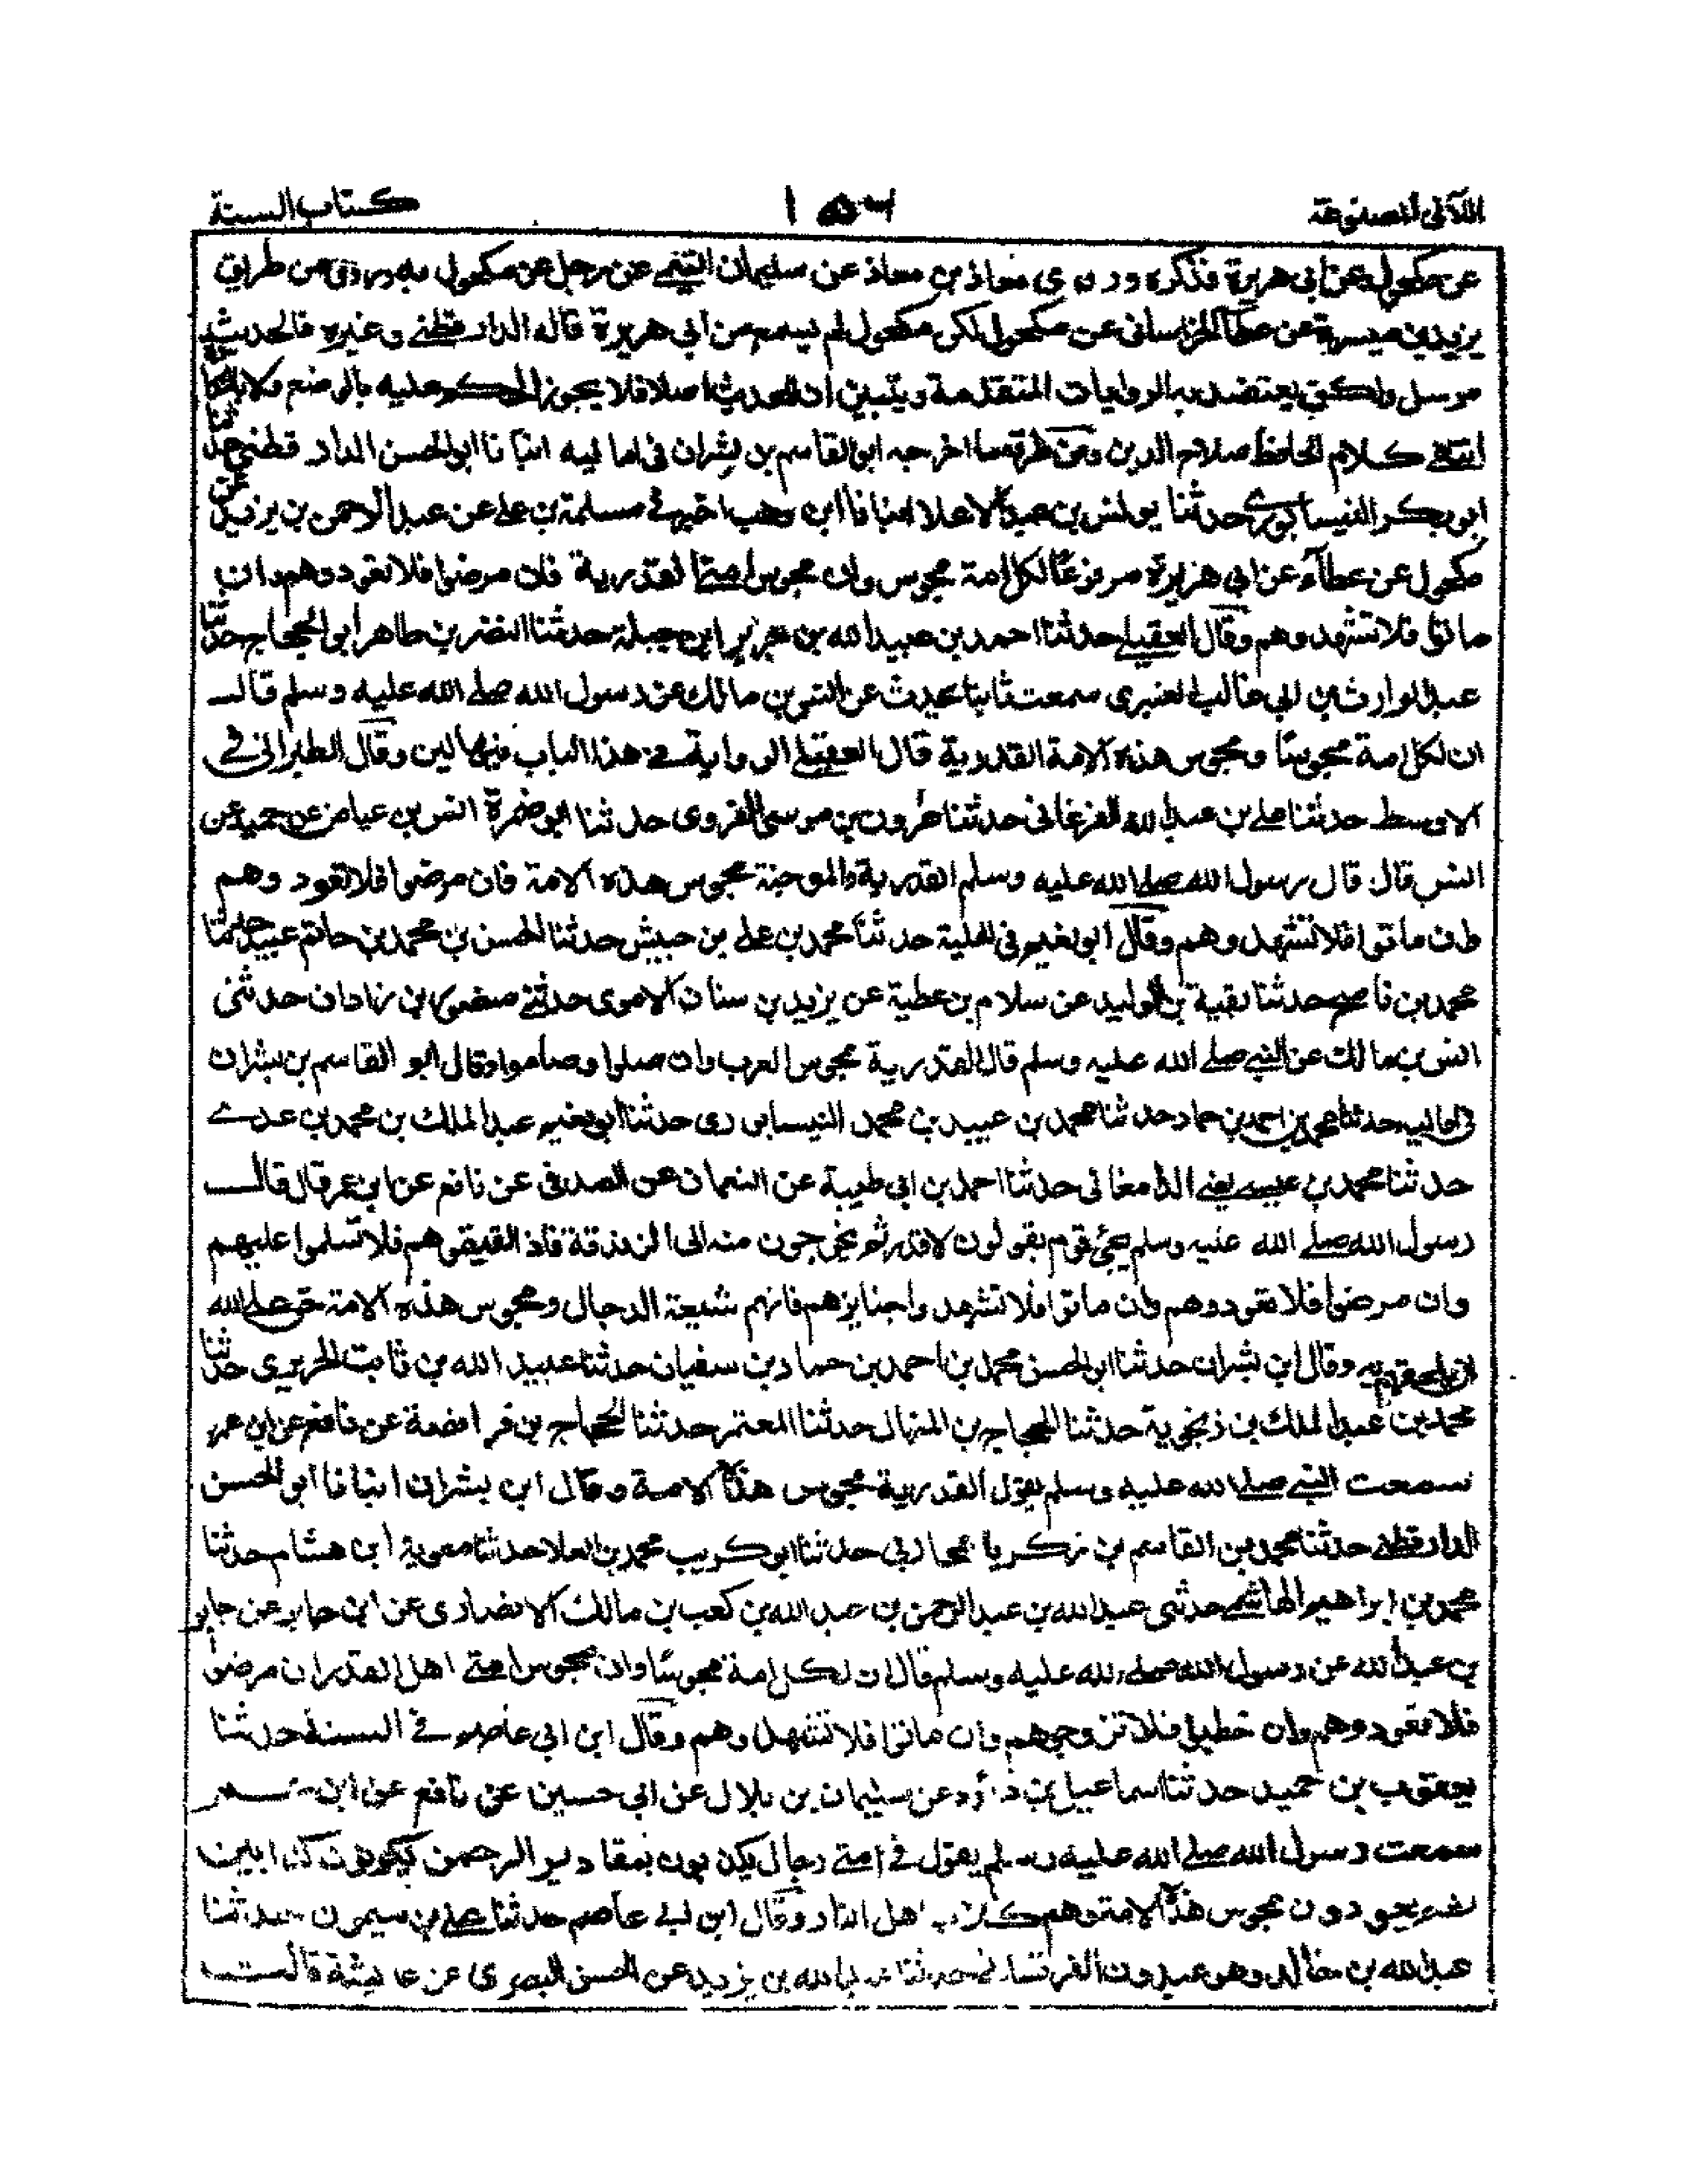 اللآلى المصنوعة كتاب السنة
عن مكحول عن ابى هريرة فذكره وروى معاذ بن معاذ عن سليمان التيمى عن رجل عن مكحول به وروى من طريق
يزيد بن ميسرة عن عطآء الخراسانى عن مكحول لكن مكحول لم يسمع من ابى هريرة قاله الدارقطنى وغيره فالحديث
مرسل ولكن يعتضد بالروايات المتقدمة ويتبين ان للحديث اصلا فلا يجوز الحكم عليه بالوضع ولا
انتهى كلام الحافظ صلاح الدين ومن طرقه ما اخرجه ابو القاسم بن بشران فى اماليه انبانا ابو الحسن الدارقطنى حدثنا
ابو بكر النيسابورى حدثنا يونس بن عبد الاعلا انبانا ابن وهب اخبرنى مسلمة بن على عن عبد الرحمن بن يزيد عن
مكحول عن عطآء عن ابى هريرة مرفوعًا لكل امة مجوس وان مجوس امتى القدرية فان مرضوا فلا تعودوهم وان
ماتوا فلا تشهدوهم وقال العقيلى حدثنا احمد بن عبيد الله بن جرير ابن جبلة حدثنا النضر بن طاهر ابو الحجاج حدثنا
عبد الوارث بن ابى غالب العنبرى سمعت ثابتا يحدث عن انس بن مالك عن رسول الله صلے الله عليه وسلم قال
ان لكل امة مجوسًا ومجوس هذه الامة القدرية قال العقيلى الرواية فى هذا الباب فيها لين وقال الطبرانى فى
الاوسط حدثنا على بن عبد الله الفرغانى حدثنا هٰرون بن موسى الفروى حدثنا ابو ضمرة انس بن عياض عن حميد عن
انس قال قال رسول الله صلے الله عليه وسلم القدرية والمرجئة مجوس هذه الامة فان مرضوا فلا تعودوهم
وان ماتوا فلا تشهدوهم وقال ابو نعيم فى الحلية حدثنا محمد بن على بن حبيش حدثنا الحسن بن محمد بن حاتم عبيد حدثنا
محمد بن ناصح حدثنا بقية بن الوليد عن سلام بن عطية عن يزيد بن سنان الاموى حدثنى منصور بن زادان حدثنى
انس بن مالك عن النبى صلے الله عليه وسلم قال القدرية مجوس العرب وان صلوا وصاموا وقال ابو القاسم بن بشران
فى اماليه حدثنا محمد بن احمد بن حماد حدثنا محمد بن عبيد بن محمد النيسابورى حدثنا ابو نعيم عبد الملك بن محمد بن عدى
حدثنا محمد بن عيسى يعنى الدامغانى حدثنا احمد بن ابى طيبة عن النعمان عن الصدفى عن نافع عن ابن عمر قال قال
رسول الله صلے الله عليه وسلم يجئ قوم يقولون لا قدر ثم يخرجون منه الى الزندقة فاذا لقيتموهم فلا تسلموا عليهم
وان مرضوا فلا تعودوهم وان ماتوا فلا تشهدوا جنايزهم فانهم شيعة الدجال ومجوس هذه الامة حق على الله
ان يلحقهم به وقال ابن بشران حدثنا ابو الحسن محمد بن احمد بن حماد بن سفيان حدثنا عبيد الله بن ثابت الحريرى حدثنا
محمد بن عبد الملك بن زنجويه حدثنا الحجاج بن المنهال حدثنا المعتمر حدثنا الحجاج بن فرافصة عن نافع عن ابن عمر
سمعت النبى صلے الله عليه وسلم يقول القدرية مجوس هذه الامة وقال ابن بشران انبانا ابو الحسن
الدارقطنى حدثنا محمد بن القاسم بن زكريا محاربى حدثنا ابو كريب محمد بن العلا حدثنا معوية ابن هشام حدثنا
محمد بن ابراهيم الهاشمى حدثنى عبد الله بن عبد الرحمن بن عبد الله بن كعب بن مالك الانصارى عن ابن جابر عن جابر
بن عبد الله عن رسول الله صلے الله عليه وسلم قال ان لكل امة مجوسًا وان مجوس امتى اهل القدر ان مرضوا
فلا تعودوهم وان خطبوا فلا تزوجوهم وان ماتوا فلا تشهدوهم وقال ابن ابى عاصم فى السنة حدثنا
يعقوب بن حميد حدثنا اسماعيل بن داود عن سليمان بن بلال عن ابى حسين عن نافع عن ابن عمر
سمعت رسول الله صلے الله عليه وسلم يقول فى امتى رجال يكذبون بمقادير الرحمن يكونون كذابين
ثم يعودون مجوس هذه الامة وهم كلاب اهل النار وقال ابن ابى عاصم حدثنا على بن ميمون حدثنا
عبد الله بن خالد وهو عبدون حدثنا عبد الله بن يزيد عن الحسن البصرى عن عايشة قالت